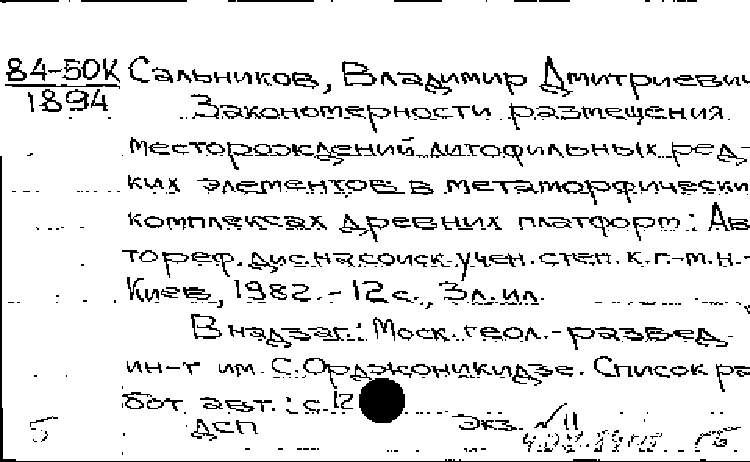 84-50К Сальников, Владимир Дмитриевич
1894 Закономерности размещения
месторождений литофильных ред-
ких элементов в метаморфически
комплексах древних платформ: Ав
тореф. дис. на соиск. учен. степ. к. г.-м. н.-
Киев, 1982.-12 с., 3 л. ил.
В надзаг.: Моск. геол.-развед.
ин-т им. С. Орджоникидзе. Список ра
бот авт.: с. 12
5 ДСП Экз.